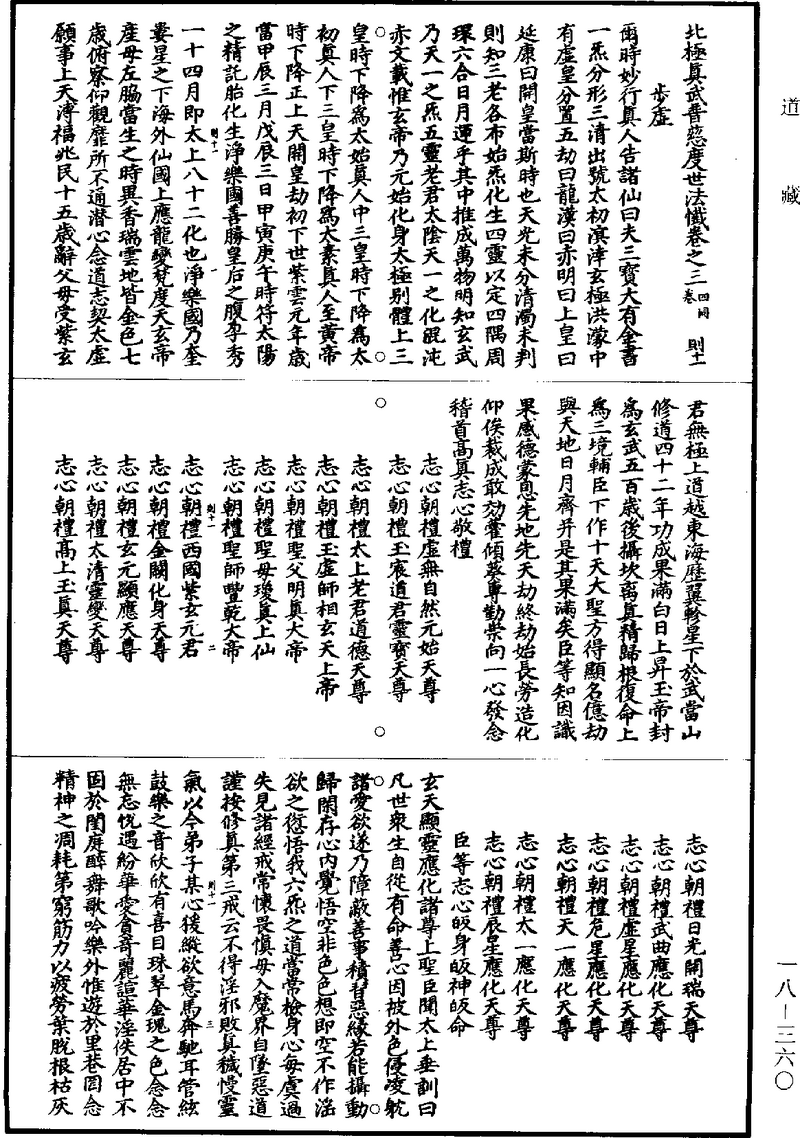 道藏
北極真武普慈度世法懺卷之三 四同卷 則十一
步虛
爾時妙行真人告諸仙曰夫三寶大有金書
一炁分形三清出號太初溟涬玄極洪濛中
有虛皇分置五劫曰龍漢曰赤明曰上皇曰
延康曰開皇當斯時也天光未分清濁未判
則知三老各布始炁化生四靈以定四隅周
環六合日月運乎其中推成萬物明知玄武
乃天一之炁五靈老君太陰天一之化混沌
赤文載惟玄帝乃元始化身太極別體上三
皇時下降為太始真人中三皇時下降為太
初真人下三皇時下降為太素真人至黃帝
時下降正上天開皇劫初下世紫雲元年歲
當甲辰三月戊辰三日甲寅庚午時符太陽
之精託胎化生淨樂國善勝皇后之腹孕秀
一十四月即太上八十二化也淨樂國乃奎
婁星之下海外仙國上應龍變梵度天玄帝
產母左脇當生之時異香瑞雲地皆金色七
歲俯察仰觀靡所不通潛心念道志契太虛
願事上天溥福兆民十五歲辭父母受紫玄
君無極上道越東海歷翼軫星下於武當山
修道四十二年功成果滿白日上昇玉帝封
為玄武五百歲後攝坎离真精歸根復命上
為三境輔臣下作十天大聖方得顯名億劫
與天地日月齊并是其果滿矣臣等知因識
果感德蒙恩先地先天劫終劫始長勞造化
仰俟裁成敢効藿傾葵專勤崇向一心發念
稽首高真志心敬禮
志心朝禮虛無自然元始天尊
志心朝禮玉宸道君靈寶天尊
志心朝禮太上老君道德天尊
志心朝禮玉虛師相玄天上帝
志心朝禮聖父明真大帝
志心朝禮聖母瓊真上仙
志心朝禮聖師豐乾大帝
志心朝禮西國紫玄元君
志心朝禮金闕化身天尊
志心朝禮玄元顯應天尊
志心朝禮太清靈變天尊
志心朝禮高上玉真天尊
志心朝禮日光開瑞天尊
志心朝禮武曲應化天尊
志心朝禮虛星應化天尊
志心朝禮危星應化天尊
志心朝禮天一應化天尊
志心朝禮太一應化天尊
志心朝禮辰星應化天尊
臣等志心皈身皈神皈命
玄天顯靈應化諸尊上聖臣聞太上垂訓曰
凡世衆生自從有命善心因被外色侵凌躭
諸愛欲遂乃障蔽善事積習惡緣若能攝動
歸閑存心內覺悟空非色色想即空不作滛
欲之愆悟我六炁之道當常檢身心每虞過
失見諸經戒常懷畏慎毋入魔界自墜惡道
謹按修真第三戒云不得淫邪敗真穢慢靈
氣以今弟子某心猨縱欲意馬奔馳耳管絃
鼓樂之音欣欣有喜目珠翠金瑰之色念念
無忘恱遇紛華愛貪奇麗諠華淫佚居中不
固於閨屏醉舞歌吟樂外惟遊於里巷罔念
精神之凋耗第窮筋力以疲勞葉脫根枯灰
一八—三六〇